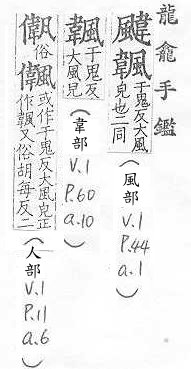 龍龕手鑑
颹 于鬼反大風
皃也二同
（風部 V.1 P.44 a.1）
于鬼反
大風皃
（韋部 V.1 P.60 a.10）
俗 或作于鬼反大風皃正
作 又俗胡每反二
（人部 V.1 P.11 a.6）